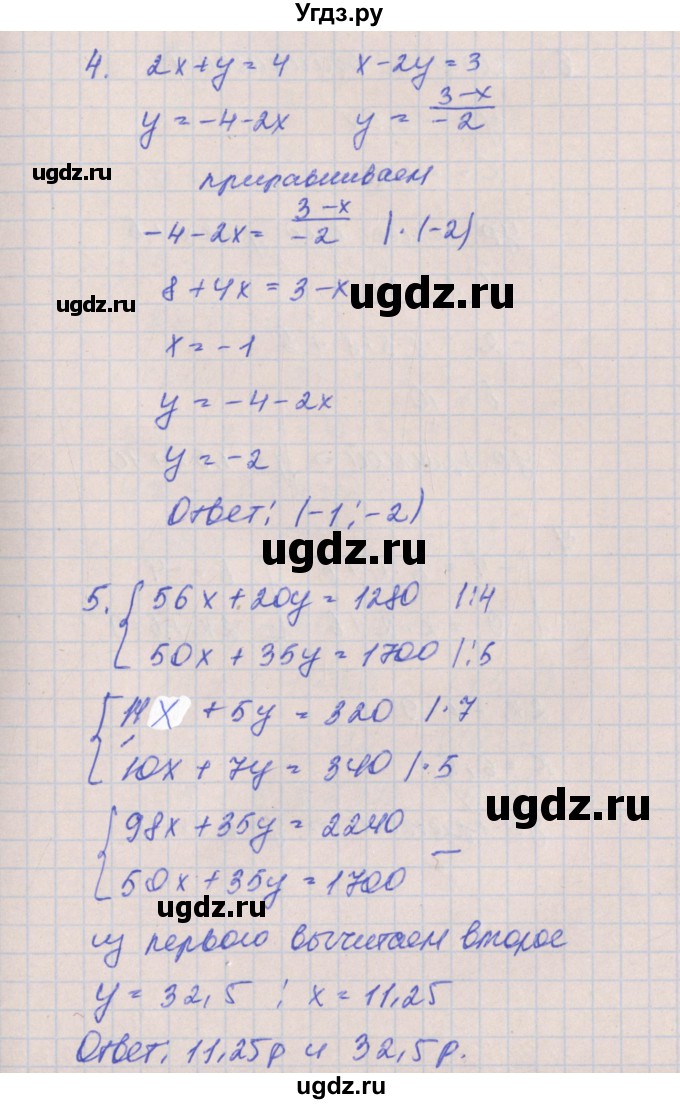 Угдз.ру
4. 2x+y=4 x-2y=3
y=-4-2x y=\frac{3-x}{-2}
ugdz.ru
приравниваем
-4-2x=\frac{3-x}{-2} |·(-2)
8+4x=3-x
ugdz.ru ugdz.ru
x=-1
y=-4-2x
y=-2
Ответ: (-1;-2)
ugdz.ru
5. { 56x+20y=1280 |:4
50x+35y=1700 |:5
{ 14x+5y=320 |·7
10x+7y=340 |·5
ugdz.ru
{ 98x+35y=2240
50x+35y=1700 —
ugdz.ru
из первого вычитаем второе
y=32,5 ; x=11,25
Ответ: 11,25р и 32,5р.
ugdz.ru